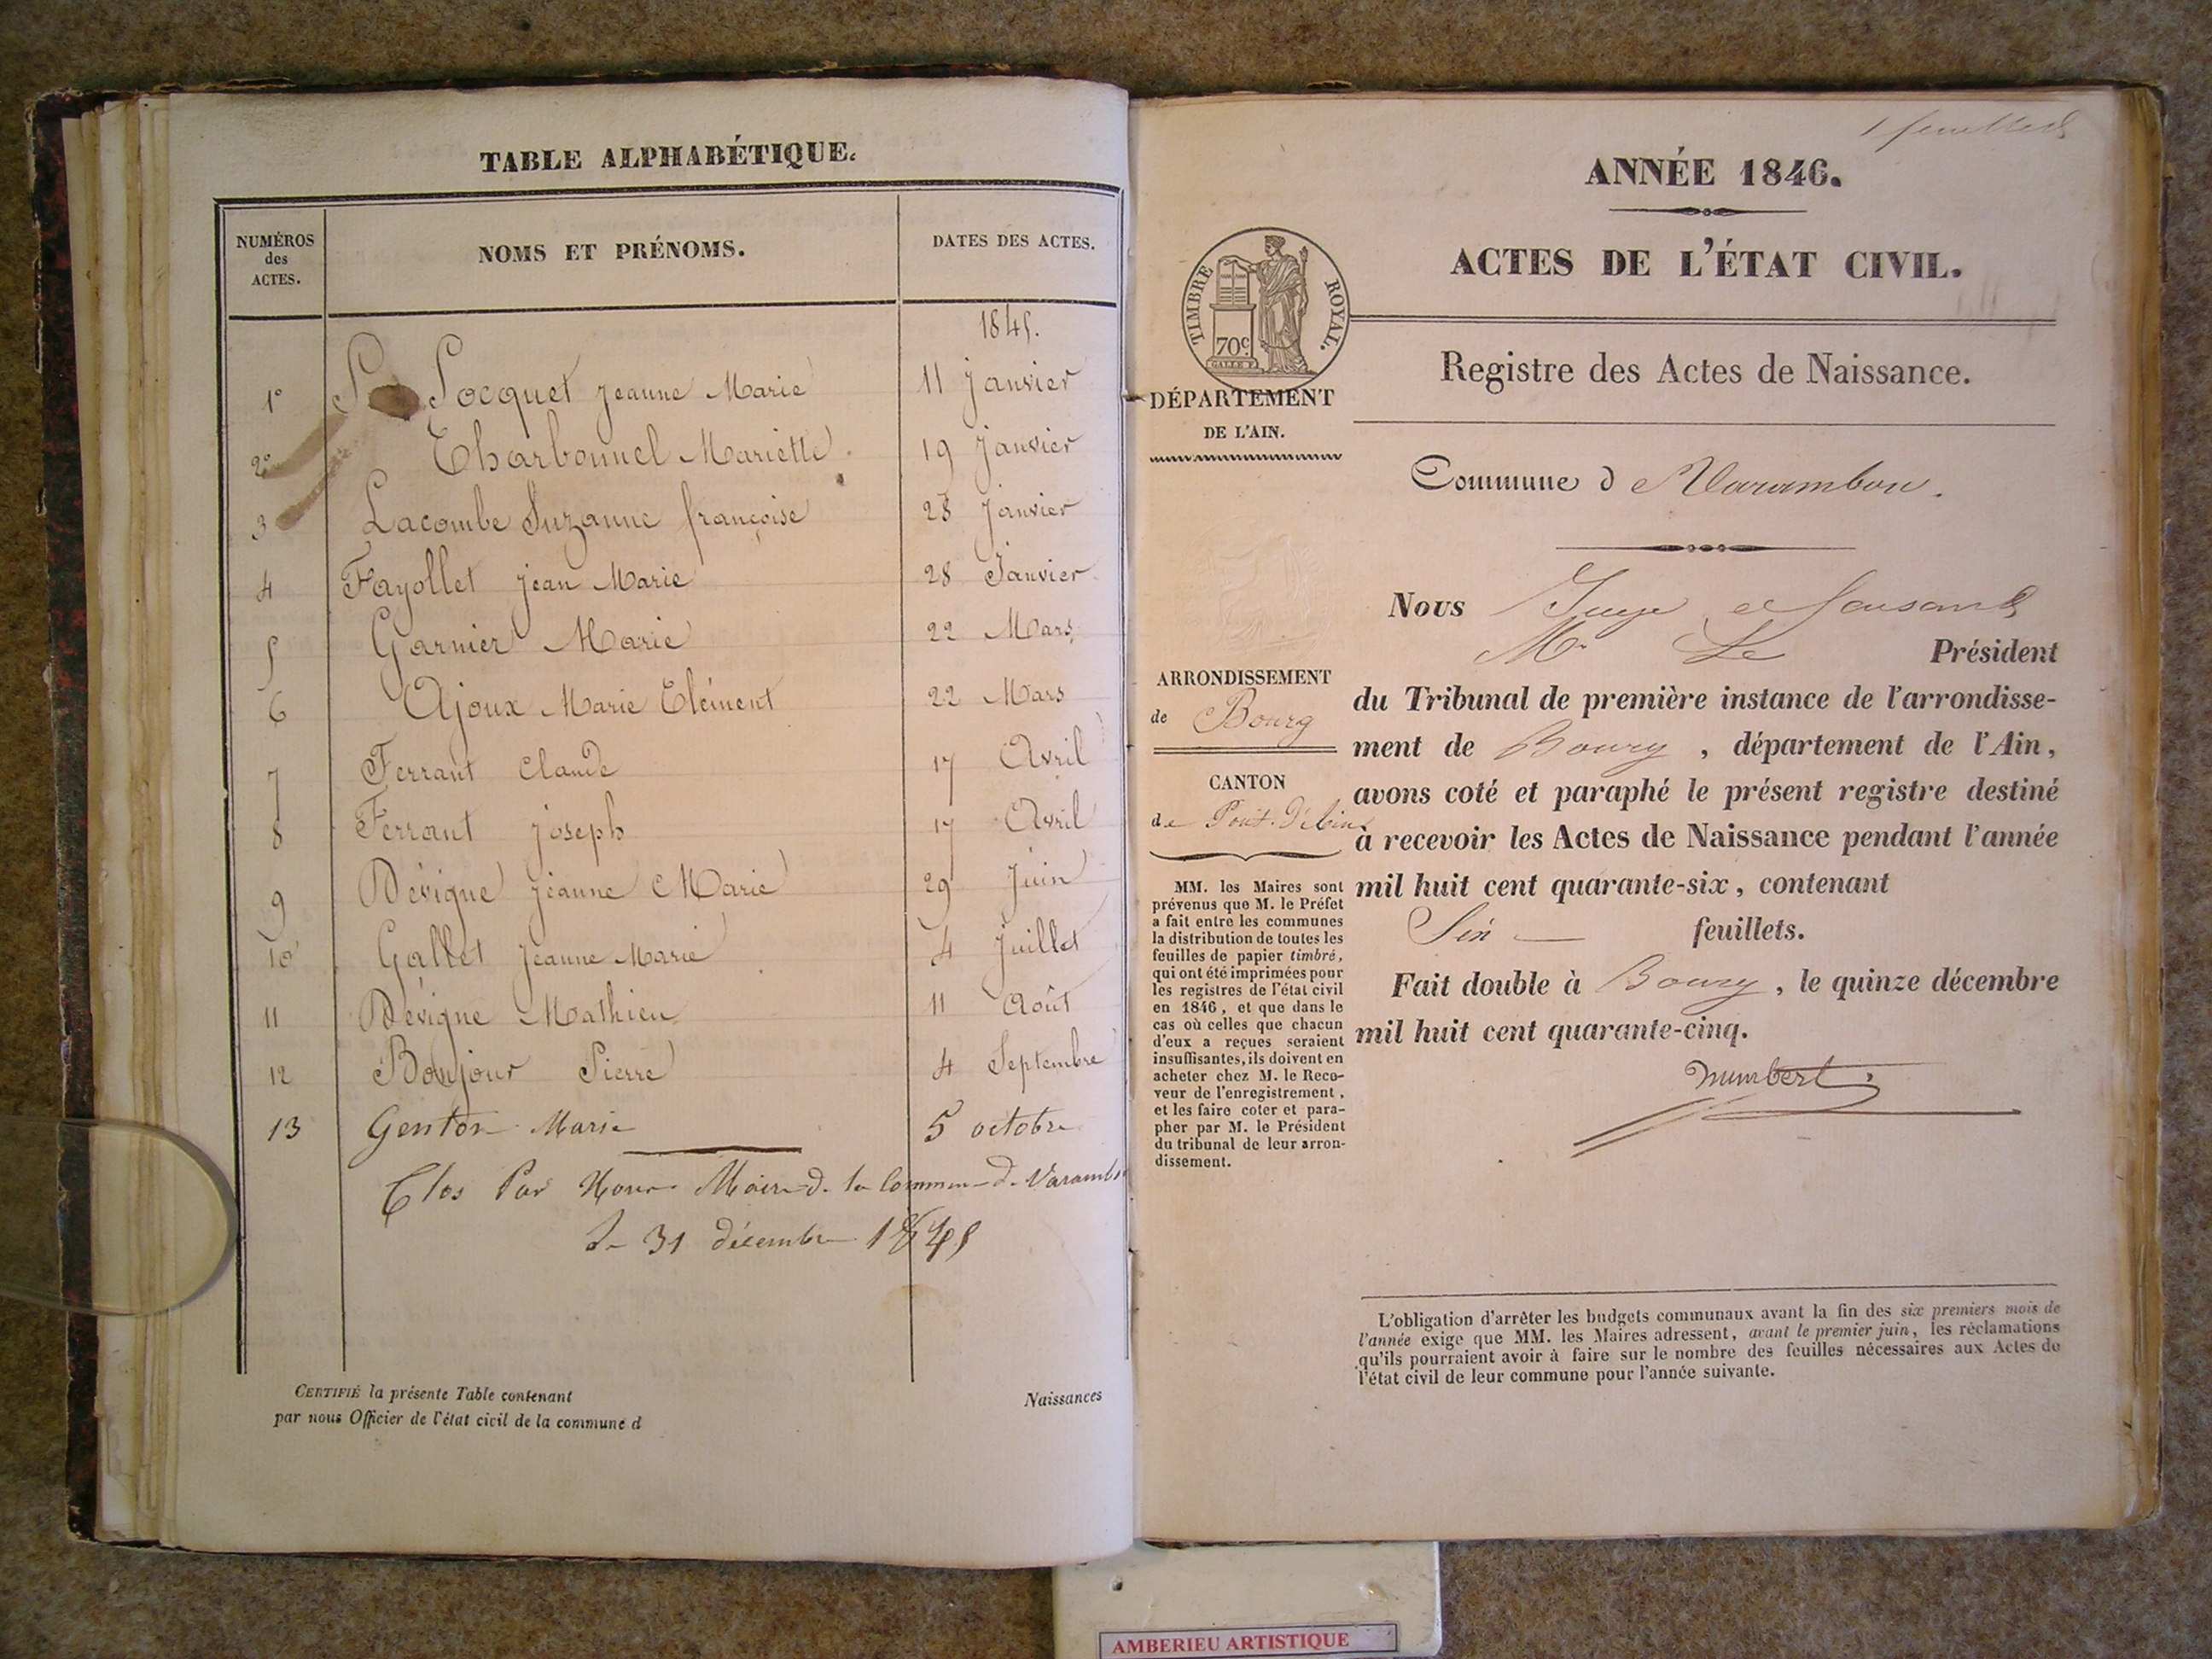 TABLE ALPHABÉTIQUE.
NUMÉROS
des
ACTES.
NOMS ET PRÉNOMS.
DATES DES ACTES.
1845.
1° Socquet Jeanne Marie 11 janvier
2° Charbonnel Mariette 19 janvier
3 Lacombe Suzanne françoise 28 janvier
4 Fayollet jean Marie 28 Janvier
5 Garnier Marie 22 Mars
6 Ajoux Marie Clément 22 Mars
7 Ferrant Claude 17 Avril
8 Ferrant joseph 17 Avril
9 Dévigne jeanne Marie 29 Juin
10 Gallet jeanne Marie 4 Juillet
11 Dévigne Mathieu 11 Août
12 Bonjour Pierre 4 Septembre
13 Genton Marie 5 octobre
Clos Par Nous Maire de la Commune de Varambon
Le 31 décembre 1845
CERTIFIÉ la présente Table contenant Naissances
par nous Officier de l'état civil de la commune d
1 feuillet
ANNÉE 1846.
ACTES DE L'ÉTAT CIVIL.
TIMBRE ROYAL.
70c
DÉPARTEMENT
DE L'AIN.
Registre des Actes de Naissance.
Commune d Varambon.
ARRONDISSEMENT
de Bourg
CANTON
de Pont-D'ain
MM. les Maires sont
prévenus que M. le Préfet
a fait entre les communes
la distribution de toutes les
feuilles de papier timbré,
qui ont été imprimées pour
les registres de l'état civil
en 1846, et que dans le
cas où celles que chacun
d'eux a reçues seraient
insuffisantes, ils doivent en
acheter chez M. le Rece-
veur de l'enregistrement,
et les faire coter et para-
pher par M. le Président
du tribunal de leur arron-
dissement.
Nous Juge
Mr Le Président
du Tribunal de première instance de l'arrondisse-
ment de Bourg, département de l'Ain,
avons coté et paraphé le présent registre destiné
à recevoir les Actes de Naissance pendant l'année
mil huit cent quarante-six, contenant
feuillets.
Fait double à Bourg, le quinze décembre
mil huit cent quarante-cinq.
L'obligation d'arrêter les budgets communaux avant la fin des six premiers mois de
l'année exige que MM. les Maires adressent, avant le premier juin, les réclamations
qu'ils pourraient avoir à faire sur le nombre des feuilles nécessaires aux Actes de
l'état civil de leur commune pour l'année suivante.
AMBERIEU ARTISTIQUE